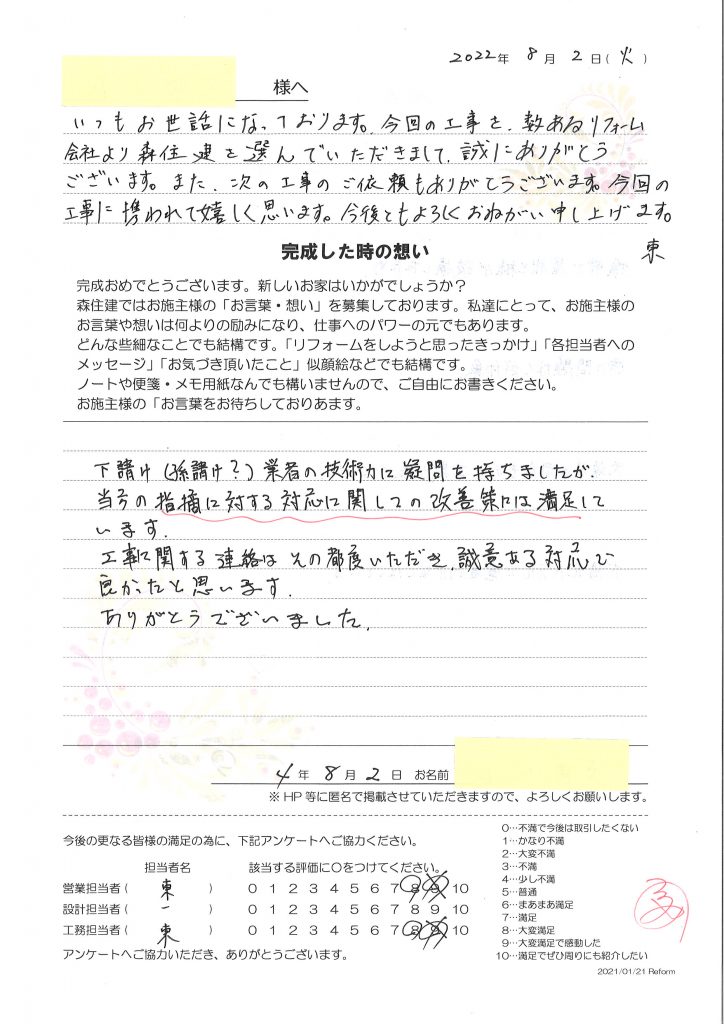 2022年 8月 2日(火)
様へ
いつもお世話になっております。今回の工事を、数あるリフォーム
会社より森住建を選んでいただきまして、誠にありがとう
ございます。また、次の工事のご依頼もありがとうございます。今回の
工事に携われて嬉しく思います。今後ともよろしくおねがい申し上げます。
東
完成した時の想い
完成おめでとうございます。新しいお家はいかがでしょうか?
森住建ではお施主様の「お言葉・想い」を募集しております。私達にとって、お施主様の
お言葉や想いは何よりの励みになり、仕事へのパワーの元でもあります。
どんな些細なことでも結構です。「リフォームをしようと思ったきっかけ」「各担当者への
メッセージ」「お気づき頂いたこと」似顔絵などでも結構です。
ノートや便箋・メモ用紙なんでも構いませんので、ご自由にお書きください。
お施主様の「お言葉をお待ちしておりあます。
下請け(孫請け?)業者の技術力に疑問を持ちましたが、
当方の指摘に対する対応に関しての改善策には満足して
います。
工事に関する連絡はその都度いただき、誠意ある対応で
良かったと思います。
ありがとうございました。
4年 8月 2日 お名前
※HP等に匿名で掲載させていただきますので、よろしくお願いします。
今後の更なる皆様の満足の為に、下記アンケートへご協力ください。
担当者名 該当する評価に○をつけてください。
営業担当者( 東 ) 0 1 2 3 4 5 6 7 8 9 10
設計担当者( ー ) 0 1 2 3 4 5 6 7 8 9 10
工務担当者( 東 ) 0 1 2 3 4 5 6 7 8 9 10
アンケートへご協力いただき、ありがとうございます。
0…不満で今後は取引したくない
1…かなり不満
2…大変不満
3…不満
4…少し不満
5…普通
6…まあまあ満足
7…満足
8…大変満足
9…大変満足で感動した
10…満足でぜひ周りにも紹介したい
2021/01/21 Reform